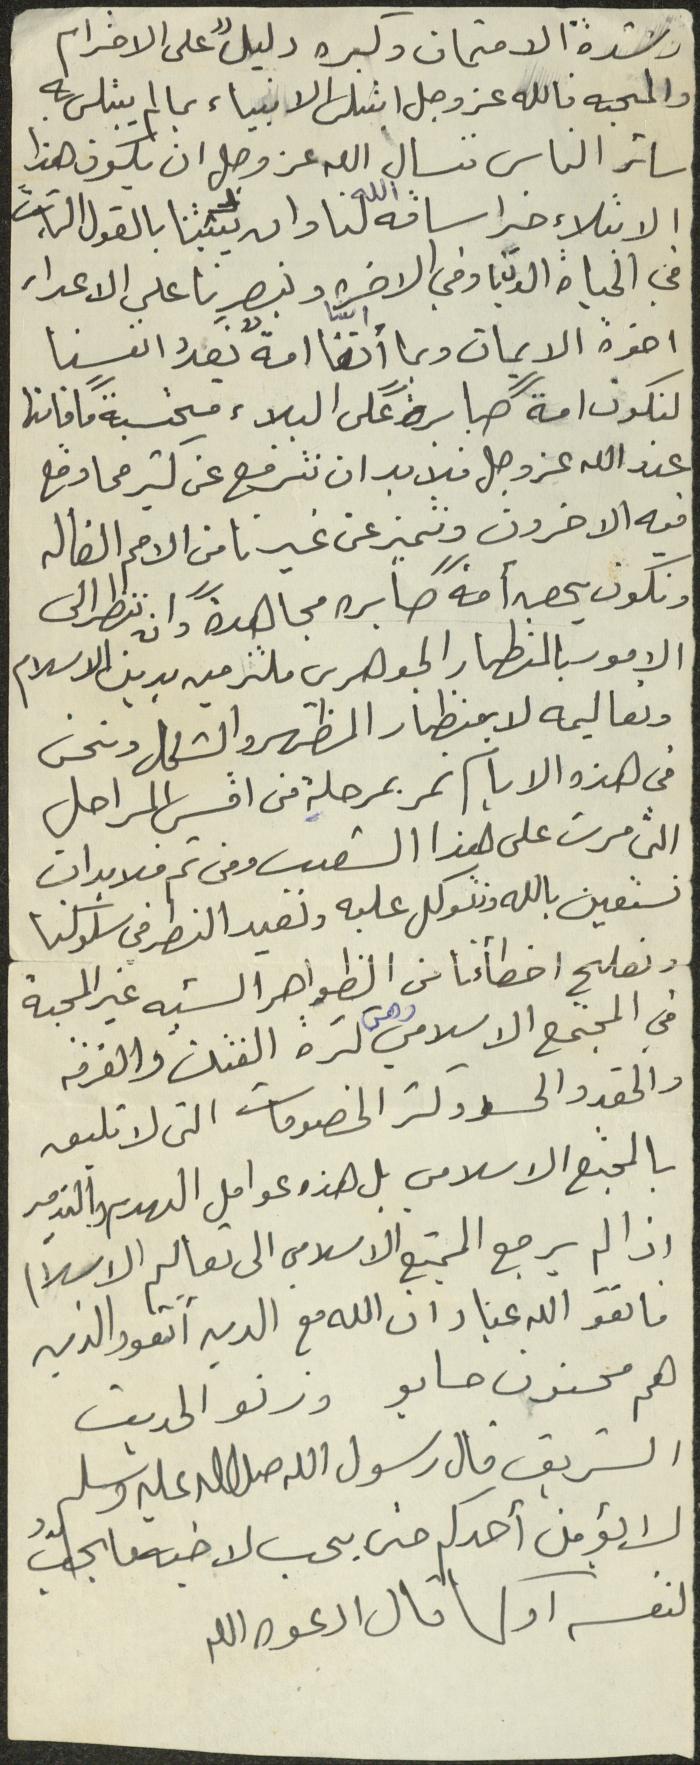 وشدة الامتحان وكبره دليل على الاحترام
والمحبه فالله عز وجل ابتلى الانبياء بما لم يبتلى به
سائر الناس نسال الله عز وجل ان يكون هذا
الابتلاء خيرا ساقه الله لنا وان يثبتنا بالقول الثابت
في الحياة الدنيا وفي الاخره وينصرنا على الاعداء
اخوة الايمان وبما أننا امة نعد انفسنا
لنكون امة صابرة على البلاء محتسبة ما فاتنا
عند الله عز وجل فلابد ان نترفع عن كثير مما وقع
فيه الاخرون ونتميز عن غيرنا من الامم الضاله
ونكون بحق أمة صابره مجاهدة وان ننظر الى
الامور بالمنظار الجوهري ملتزمين بدين الاسلام
وتعاليمه لا بمنظار المظهر والشكل ونحن
في هذه الايام نمر بمرحلة من اقسى المراحل
التي مرت على هذا الشعب ومن ثم فلابد ان
نستعين بالله ونتوكل عليه ونعيد النظر في سلوكنا
ونعالج اخطأنا من الظواهر السيئه غير المحببة
في المجتمع الاسلامي وهي كثرة الفتن والفرقه
والحقد والحسد وكثر الخصومات التي لا تليق
بالمجتمع الاسلامي بل هذه عوامل الهدم والتدمير
اذا لم يرجع المجتمع الاسلامي الى تعاليم الاسلام
فاتقو الله عباد ان الله مع الذين أتقو والذين
هم محسنون حاسبو وزنو الحديث
الشريف قال رسول الله صلى الله عليه وسلم
لا يؤمن أحدكم حتى يحب لاخيه ما يحب
لنفسه أو كما قال ادعوه الله